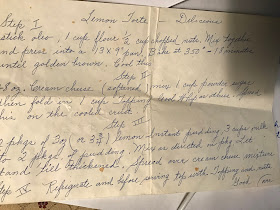 Step I Lemon Torte Delicious
stick oleo, 1 cup flour ½ cup chopped nuts. Mix together
and press into a 13 x 9" pan Bake at 350° - 18 minutes
until golden brown. Cool this
Step II
8 oz. cream cheese (softened) mix 1 cup powder sugar
then fold in 1 cup Topping
this on the cooled crust.
Step III
2 pkgs of 3 oz (or 3¾) lemon instant pudding, 3 cups milk
to 2 pkgs of pudding. Mix as directed on pkg. Let
stand till thickened. Spread over cream cheese mixture
Step IV Refrigerate and before serving top with Topping and nuts
Good